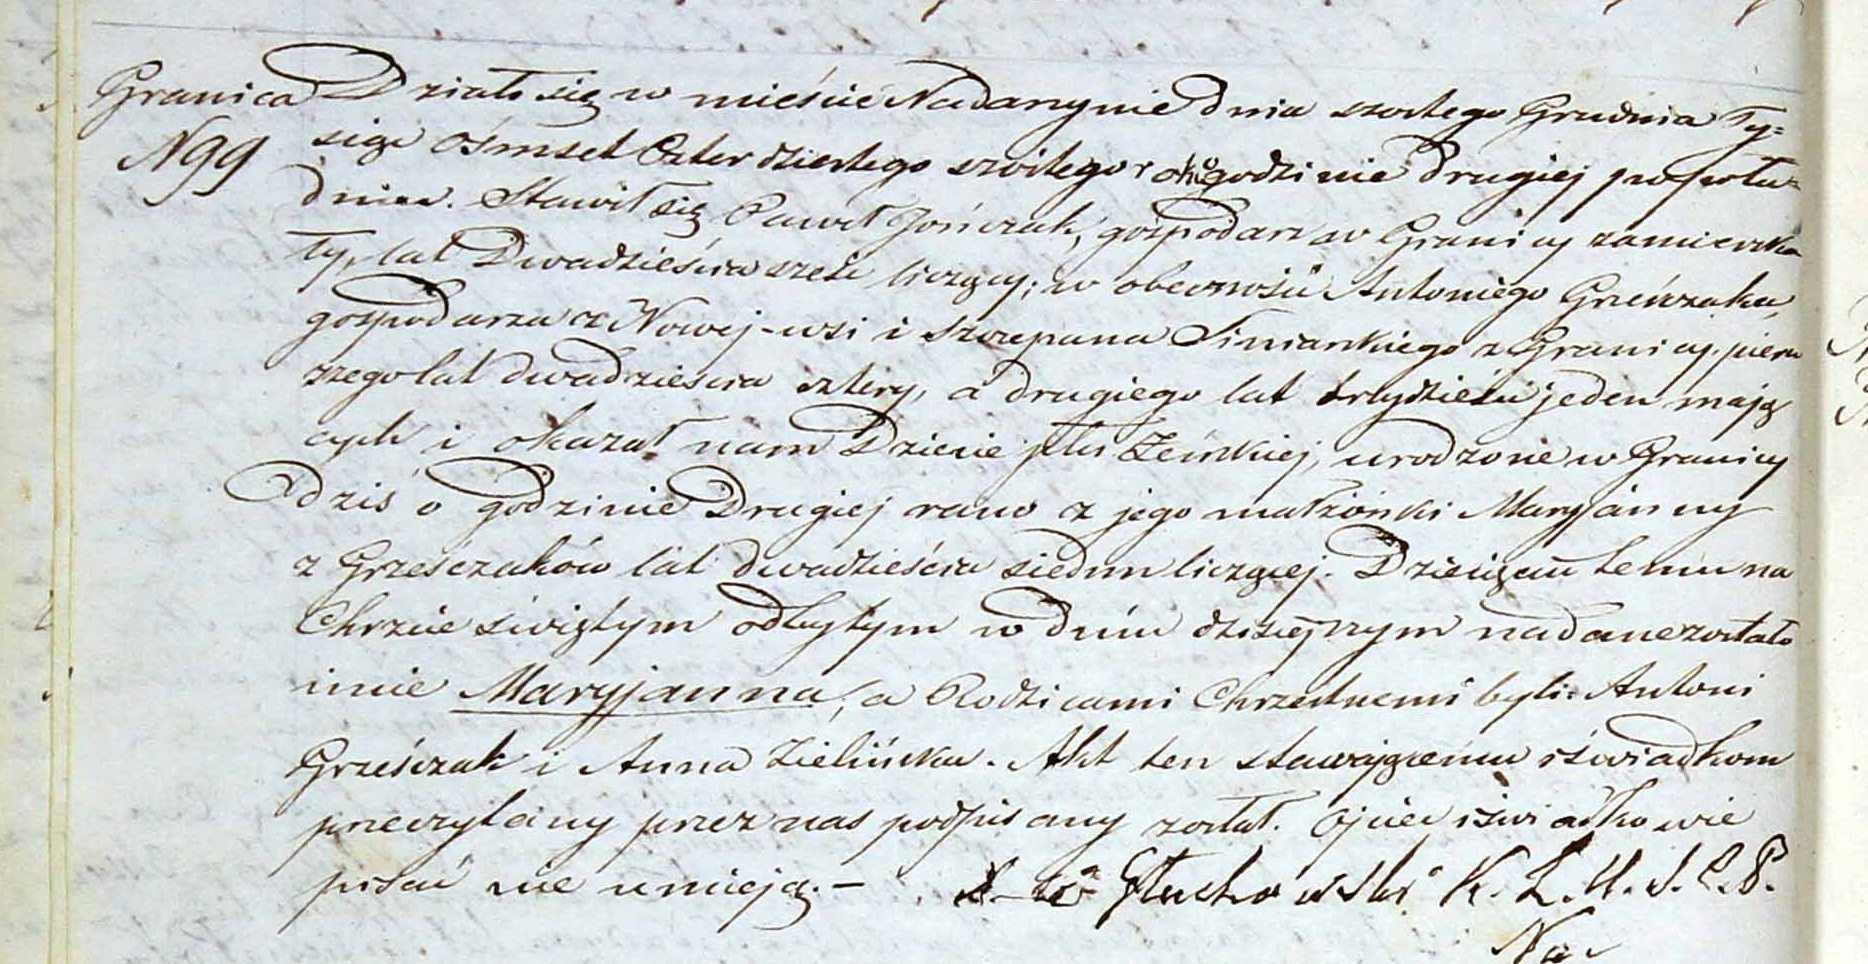 Granica Działo się w mieście Nadarzynie dnia szóstego Grudnia Ty=
N 99 siąc Ośmset Czterdziestego szóstego roku o godzinie drugiej po połu=
dniu. Stawił się Paweł Jończak, gospodarz w Granicy zamieszka
ły, lat Dwadzieścia sześć liczący; w obecności Antoniego Grześczaka,
gospodarza z Nowej-wsi i Szczepana Siniarskiego z Granicy. pierw
szego lat dwadzieścia cztery, a drugiego lat trzydzieści jeden mają
cych i okazał nam Dziecie płci Żeńskiej, urodzone w Granicy
dziś o godzinie Drugiej rano z jego małżonki Maryjanny
z Grześczaków lat dwadzieścia siedm liczącej. Dziecięciu temu na
Chrzcie świętym odbytym w dniu dzisiejszym nadane zostało
imie Maryjanna, a Rodzicami Chrzestnemi byli: Antoni
Grześczak i Anna Zielińska. Akt ten stawającemu i świadkom
przeczytany przez nas podpisany został. Ojciec i świadkowie
pisać nie umieją. – Głuchowski K. L. U. S. C. P.